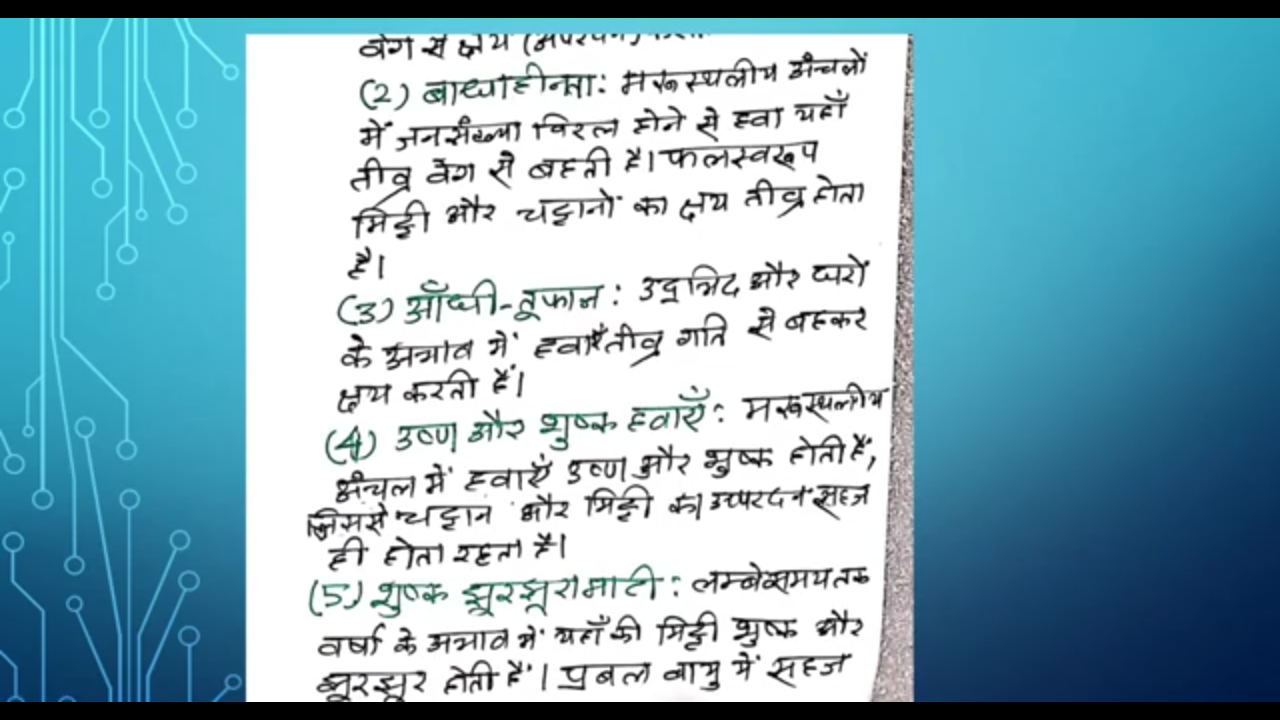 वेग से क्षय
(2) बाधाहीनता: मरूस्थलीय अंचलों
में जनसंख्या विरल होने से हवा यहाँ
तीव्र वेग से बहती है। फलस्वरूप
मिट्टी और चट्टानों का क्षय तीव्र होता
है।
(3) आँधी-तूफान: उद्भिद और घरों
के अभाव में हवाएँ तीव्र गति से बहकर
क्षय करती हैं।
(4) उष्ण और शुष्क हवाएँ: मरूस्थलीय
अंचल में हवाएँ उष्ण और शुष्क होती हैं,
जिससे चट्टान और मिट्टी का सहज
ही होता रहता है।
(5) शुष्क झूरझूरा माटी: लम्बे समय तक
वर्षा के अभाव में यहाँ की मिट्टी शुष्क और
झूरझूर होती हैं। प्रबल वायु में सहज